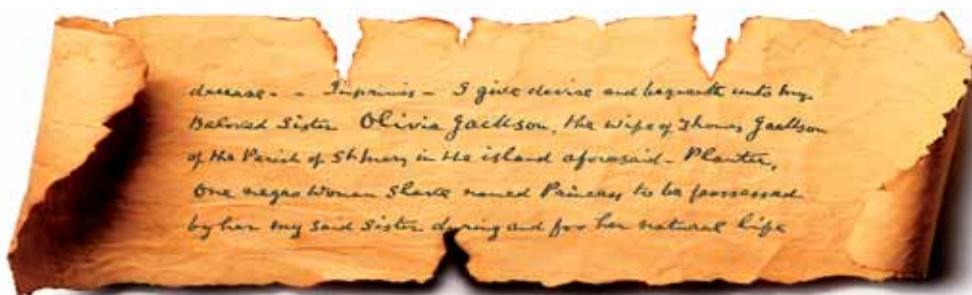 decease. - Imprimis - I give devise and bequeath unto my
Beloved Sister Olivia Jackson, the wife of Thomas Jackson
of the Parish of St Mary in the island aforesaid - Planter,
One negro Woman Slave named to be possessed
by her my said Sister during and for her natural life